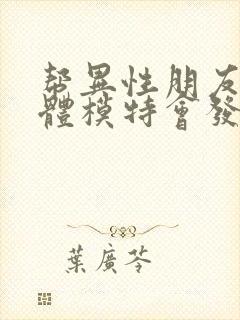 帮異性朋友
體模特會發
葉廣芩